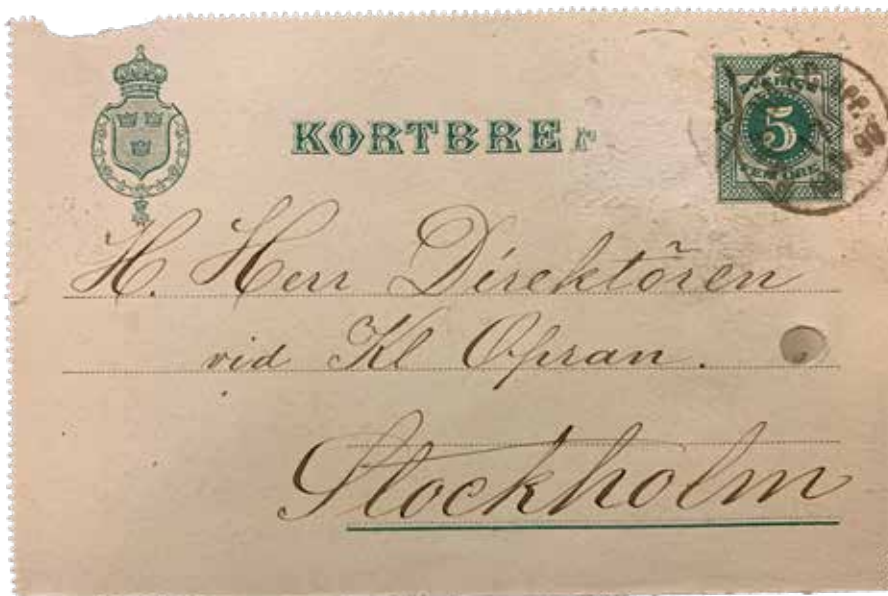 KORTBREF
SVERIGE
5
FEM ÖRE
H. Herr Direktören
vid Kl Opran.
Stockholm